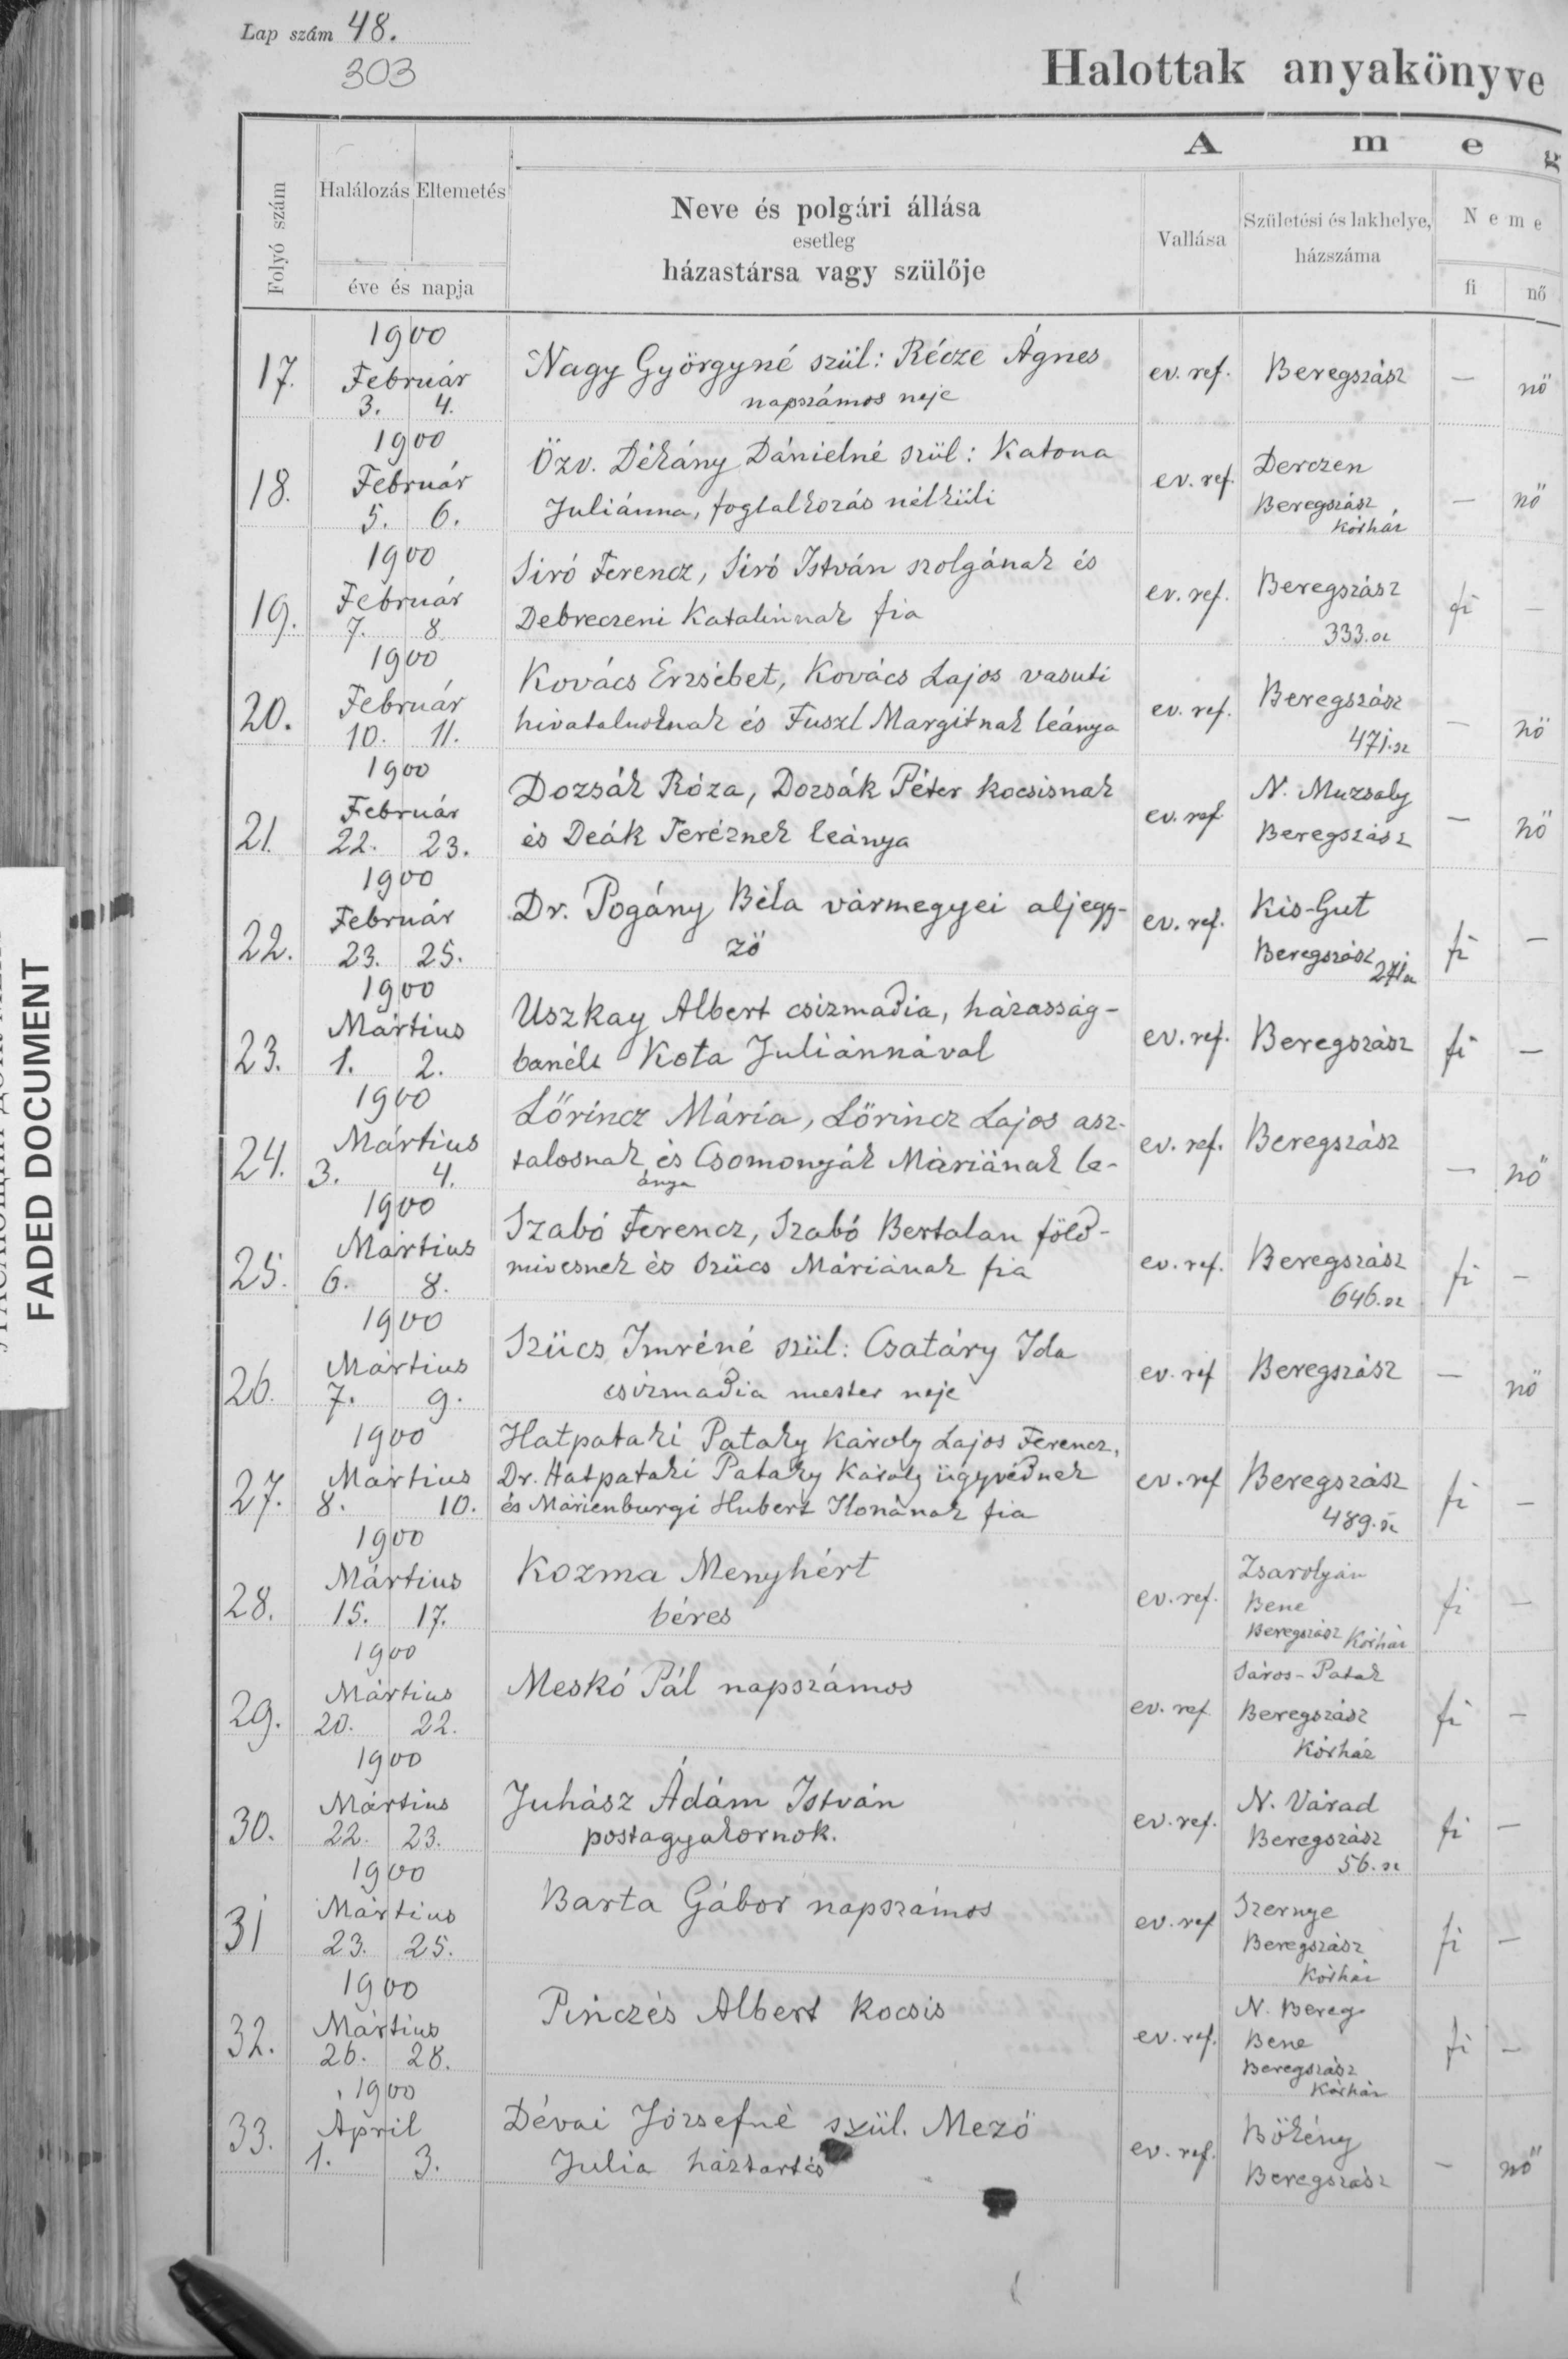 Lap szám 48.
303
Halottak anyakönyve
A m e g
Folyó szám
Halálozás Eltemetés
éve és napja
Neve és polgári állása
esetleg
házastársa vagy szülője
Vallása
Születési és lakhelye,
házszáma
Neme
fi nő
1900
17. Február 3. 4.
Nagy Györgyné szül: Récze Ágnes
napszámos neje
ev. ref. Beregszász — nö
1900
18. Február 5. 6.
Özv. Dékány Dánielné szül: Katona
Juliánna, foglalkozás nélküli
ev. ref. Derczen
Beregszász
kórház
— nö
1900
19. Február 7. 8
Siró Ferencz, Siró István szolgának és
Debreczeni Katalinnak fia
ev. ref. Beregszász
333.sz
fi —
1900
20. Február 10. 11.
Kovács Erzsébet, Kovács Lajos vasuti
hivatalnoknak és Fuszl Margitnak leánya
ev. ref. Beregszász
471.sz
— nö
1900
21. Február 22. 23.
Dozsák Róza, Dozsák Péter kocsisnak
és Deák Teréznek leánya
ev. ref N. Muzsaly
Beregszász
— nö
1900
22. Február 23. 25.
Dr. Pogány Béla vármegyei aljegy-
zö
ev. ref. Kis-Gut
Beregszász
fi —
1900
23. Mártius 1. 2.
Uszkay Albert csizmadia, házasság-
banélt Kota Juliánnával
ev. ref. Beregszász fi —
1900
24. Mártius 3. 4.
Lőrincz Mária, Lőrincz Lajos asz-
talosnak és Csomonyák Máriának le-
ánya
ev. ref. Beregszász — nö
1900
25. Mártius 6. 8.
Szabó Ferencz, Szabó Bertalan föld-
mivesnek és Szücs Máriának fia
ev. ref. Beregszász
646.sz
fi —
1900
26. Mártius 7. 9.
Szücs Imréné szül: Csatáry Ida
csizmadia mester neje
ev. ref Beregszász — nö
1900
27. Mártius 8. 10.
Hatpataki Pataky Károly Lajos Ferencz,
Dr. Hatpataki Pataky Károly ügyvédnek
és Márienburgi Hubert Ilonának fia
ev. ref Beregszász
489.sz
fi —
1900
28. Mártius 15. 17.
Kozma Menyhért
béres
ev. ref. Zsarolyán
Bene
Beregszász Kórház
fi —
1900
29. Mártius 20. 22.
Meskó Pál napszámos
ev. ref Sáros-Patak
Beregszász
Kórház
fi —
1900
30. Mártius 22. 23.
Juhász Ádám István
postagyakornok.
ev. ref. N. Várad
Beregszász
56.sz
fi —
1900
31 Mártius 23. 25.
Barta Gábor napszámos
ev. ref Szernye
Beregszász
Kórház
fi —
1900
32. Mártius 26. 28.
Pinczés Albert kocsis
ev. ref. N. Bereg
Bene
Beregszász
Kórház
fi —
1900
33. April 1. 3.
Dévai Józsefné szül. Mező
Julia háztartás
ev. ref. Bökény
Beregszász
— nö
FADED DOCUMENT